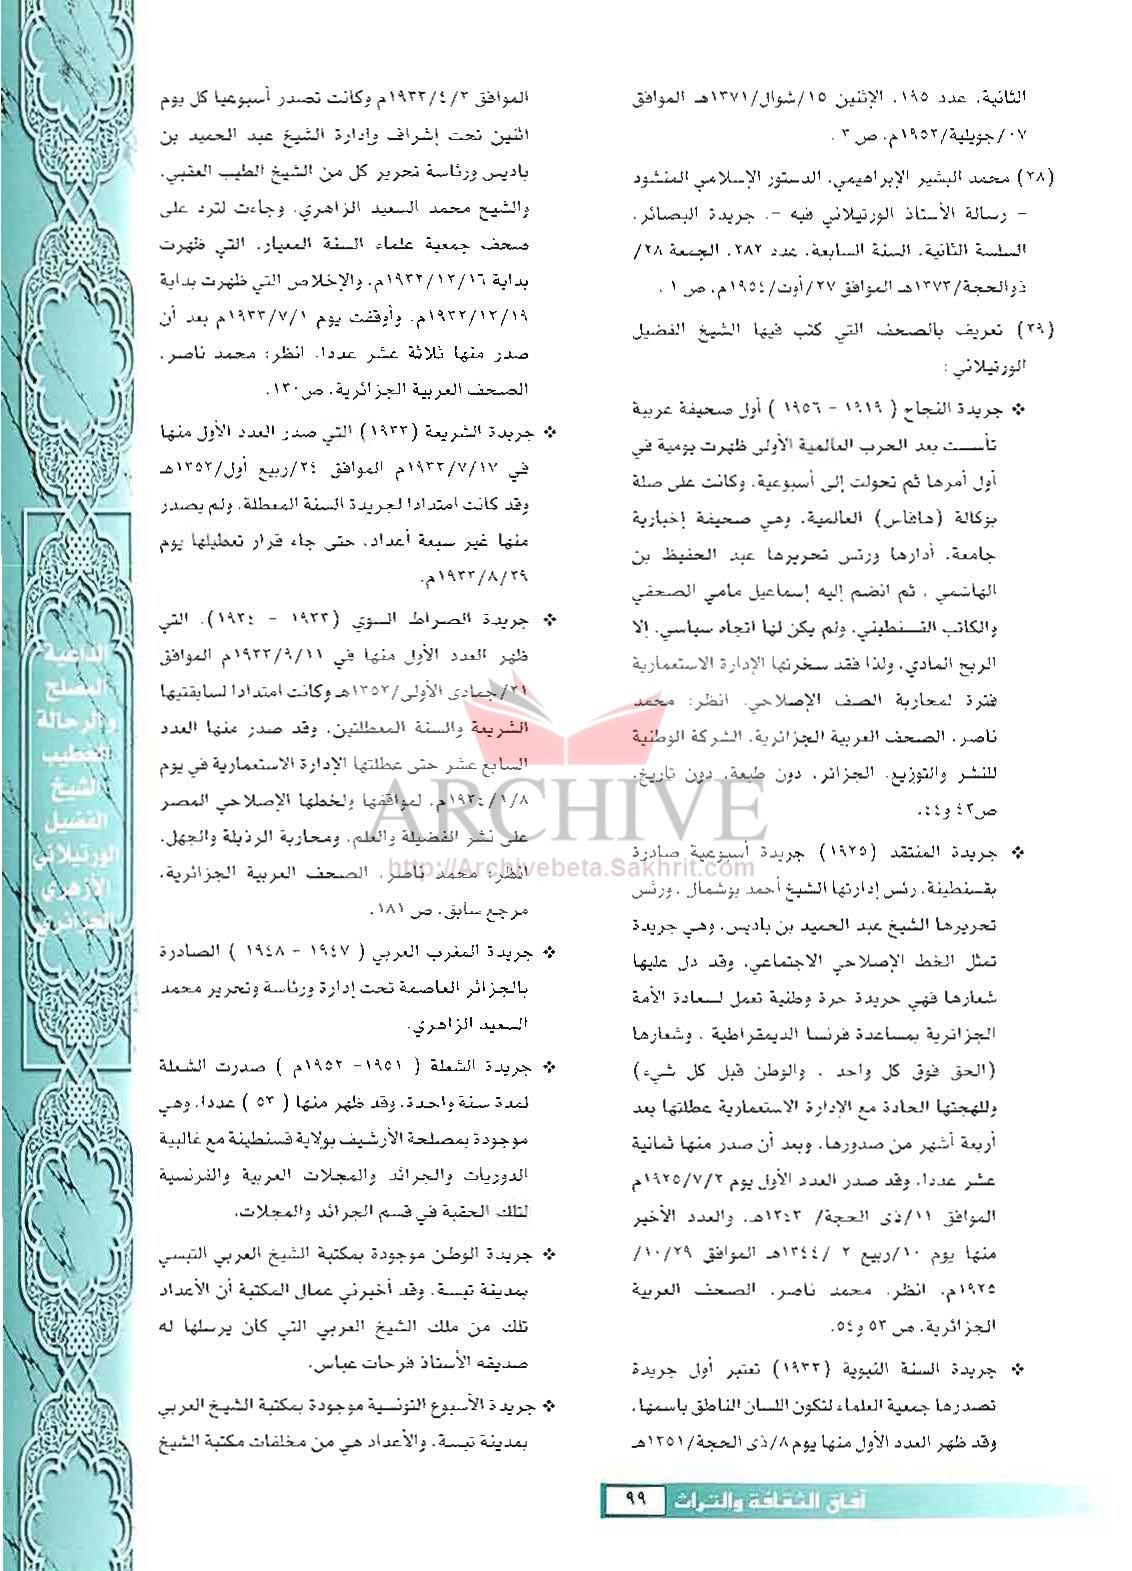 الثانية، عدد ١٩٥، الإثنين ١٥/شوال/١٣٧١هـ الموافق
٠٧/جويلية/١٩٥٢م، ص ٣ .
(٢٨) محمد البشير الإبراهيمي، الدستور الإسلامي المنشود
- رسالة الأستاذ الورتيلاني فيه -، جريدة البصائر،
السلسة الثانية، السنة السابعة، عدد ٢٨٢، الجمعة ٢٨/
ذوالحجة/١٣٧٣هـ الموافق ٢٧/أوت/١٩٥٤م، ص ١ .
(٢٩) تعريف بالصحف التي كتب فيها الشيخ الفضيل
الورتيلاني :
❖ جريدة النجاح ( ١٩١٩ - ١٩٥٦ ) أول صحيفة عربية
تأسست بعد الحرب العالمية الأولى ظهرت يومية في
أول أمرها ثم تحولت إلى أسبوعية، وكانت على صلة
بوكالة (هافاس) العالمية، وهي صحيفة إخبارية
جامعة، أدارها ورئس تحريرها عبد الحفيظ بن
الهاشمي ، ثم انضم إليه إسماعيل مامي الصحفي
والكاتب القسنطيني، ولم يكن لها اتجاه سياسي، إلا
الربح المادي، ولذا فقد سخرتها الإدارة الاستعمارية
فترة لمحاربة الصف الإصلاحي، انظر: محمد
ناصر، الصحف العربية الجزائرية، الشركة الوطنية
للنشر والتوزيع، الجزائر، دون طبعة، دون تاريخ،
ص٤٣ و٤٤.
❖ جريدة المنتقد (١٩٢٥) جريدة أسبوعية صادرة
بقسنطينة، رئس إدارتها الشيخ أحمد بوشمال ، ورئس
تحريرها الشيخ عبد الحميد بن باديس، وهي جريدة
تمثل الخط الإصلاحي الاجتماعي، وقد دل عليها
شعارها فهي جريدة حرة وطنية تعمل لسعادة الأمة
الجزائرية بمساعدة فرنسا الديمقراطية ، وشعارها
(الحق فوق كل واحد ، والوطن قبل كل شيء)
وللهجتها الحادة مع الإدارة الاستعمارية عطلتها بعد
أربعة أشهر من صدورها، وبعد أن صدر منها ثمانية
عشر عددا، وقد صدر العدد الأول يوم ١٩٢٥/٧/٢م
الموافق ١١/ذي الحجة/ ١٣٤٣هـ، والعدد الأخير
منها يوم ١٠/ربيع ٢ /١٣٤٤هـ الموافق ١٠/٢٩/
١٩٢٥م، انظر، محمد ناصر، الصحف العربية
الجزائرية، ص ٥٣ و٥٤.
❖ جريدة السنة النبوية (١٩٣٣) تعتبر أول جريدة
تصدرها جمعية العلماء لتكون اللسان الناطق باسمها،
وقد ظهر العدد الأول منها يوم ٨/ذي الحجة/١٣٥١هـ
الموافق ١٩٣٣/٤/٣م وكانت تصدر أسبوعيا كل يوم
اثنين تحت إشراف وإدارة الشيخ عبد الحميد بن
باديس ورئاسة تحرير كل من الشيخ الطيب العقبي،
والشيخ محمد السعيد الزاهري، وجاءت لترد على
صحف جمعية علماء السنة المعيار، التي ظهرت
بداية ١٩٣٢/١٢/١٦م، والإخلاص التي ظهرت بداية
١٩٣٢/١٢/١٩م، وأوقفت يوم ١٩٣٣/٧/١م بعد أن
صدر منها ثلاثة عشر عددا، انظر: محمد ناصر،
الصحف العربية الجزائرية، ص١٣٠.
❖ جريدة الشريعة (١٩٣٣) التي صدر العدد الأول منها
في ١٩٣٣/٧/١٧م الموافق ٢٤/ربيع أول/١٣٥٢هـ
وقد كانت امتدادا لجريدة السنة المعطلة، ولم يصدر
منها غير سبعة أعداد، حتى جاء قرار تعطيلها يوم
١٩٣٣/٨/٢٩م.
❖ جريدة الصراط السوي (١٩٣٣ - ١٩٣٤)، التي
ظهر العدد الأول منها في ١٩٣٣/٩/١١م الموافق
٢١/جمادى الأولى/١٣٥٢هـ وكانت امتدادا لسابقتيها
الشريعة والسنة المعطلتين، وقد صدر منها العدد
السابع عشر حتى عطلتها الإدارة الاستعمارية في يوم
١٩٣٤/١/٨م، لمواقفها ولخطها الإصلاحي المصر
على نشر الفضيلة والعلم، ومحاربة الرذيلة والجهل،
انظر: محمد ناصر، الصحف العربية الجزائرية،
مرجع سابق، ص ١٨١.
❖ جريدة المغرب العربي ( ١٩٤٧ - ١٩٤٨ ) الصادرة
بالجزائر العاصمة تحت إدارة ورئاسة وتحرير محمد
السعيد الزاهري.
❖ جريدة الشعلة ( ١٩٥١- ١٩٥٢م ) صدرت الشعلة
لمدة سنة واحدة، وقد ظهر منها ( ٥٣ ) عددا، وهي
موجودة بمصلحة الأرشيف بولاية قسنطينة مع غالبية
الدوريات والجرائد والمجلات العربية والفرنسية
لتلك الحقبة في قسم الجرائد والمجلات.
❖ جريدة الوطن موجودة بمكتبة الشيخ العربي التبسي
بمدينة تبسة، وقد أخبرني عمال المكتبة أن الأعداد
تلك من ملك الشيخ العربي التي كان يرسلها له
صديقه الأستاذ فرحات عباس.
❖ جريدة الأسبوع التونسية موجودة بمكتبة الشيخ العربي
بمدينة تبسة، والأعداد هي من مخلفات مكتبة الشيخ
الداعية
المصلح
والرحالة
الخطيب
الشيخ
الفضيل
الورتيلاني
الأزهري
الجزائري
ARCHIVE
http://Archivebeta.Sakhrit.com
آفاق الثقافة والتراث ٩٩